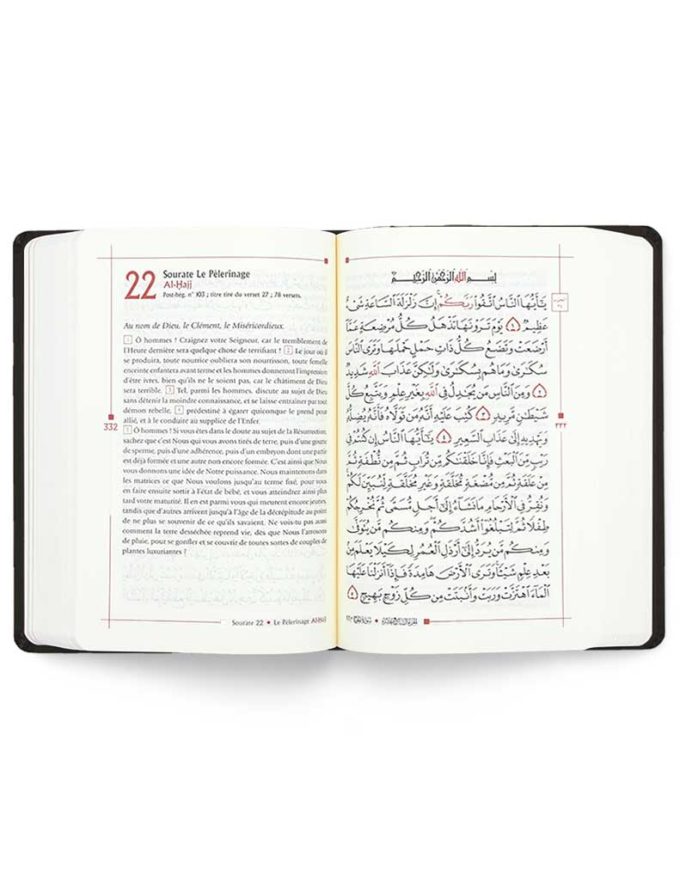 22
Sourate Le Pèlerinage
Al-Ḥajj
Post-hég. n° 103 ; titre tiré du verset 27 ; 78 versets.
Au nom de Dieu, le Clément, le Miséricordieux.
1 Ô hommes ! Craignez votre Seigneur, car le tremblement de
l'Heure dernière sera quelque chose de terrifiant ! 2 Le jour où il
se produira, toute nourrice oubliera son nourrisson, toute femelle
enceinte enfantera avant terme et les hommes donneront l'impression
d'être ivres, bien qu'ils ne le soient pas, car le châtiment de Dieu
sera terrible. 3 Tel, parmi les hommes, discute au sujet de Dieu
sans détenir la moindre connaissance, et se laisse entraîner par tout
démon rebelle, 4 prédestiné à égarer quiconque le prend pour
allié, et à le conduire au supplice de l'Enfer.
5 Ô hommes ! Si vous êtes dans le doute au sujet de la Résurrection,
sachez que c'est Nous qui vous avons tirés de terre, puis d'une goutte
de sperme, puis d'une adhérence, puis d'un embryon dont une partie
est déjà formée et une autre non encore formée. C'est ainsi que Nous
vous donnons une idée de Notre puissance. Nous maintenons dans
les matrices ce que Nous voulons jusqu'au terme fixé, pour vous
en faire ensuite sortir à l'état de bébé, et vous atteindrez ainsi plus
tard votre maturité. Il en est parmi vous qui meurent encore jeunes,
tandis que d'autres arrivent jusqu'à l'âge de la décrépitude au point
de ne plus se souvenir de ce qu'ils savaient. Ne vois-tu pas aussi
comment la terre desséchée reprend vie, dès que Nous l'arrosons
de pluie, pour se gonfler et se couvrir de toutes sortes de couples de
plantes luxuriantes ?
332
Sourate 22 • Le Pèlerinage Al-Ḥajj
بِسْمِ اللَّهِ الرَّحْمَٰنِ الرَّحِيمِ
يَا أَيُّهَا النَّاسُ اتَّقُوا رَبَّكُمْ إِنَّ زَلْزَلَةَ السَّاعَةِ شَيْءٌ
عَظِيمٌ ١ يَوْمَ تَرَوْنَهَا تَذْهَلُ كُلُّ مُرْضِعَةٍ عَمَّا
أَرْضَعَتْ وَتَضَعُ كُلُّ ذَاتِ حَمْلٍ حَمْلَهَا وَتَرَى النَّاسَ
سُكَارَىٰ وَمَا هُم بِسُكَارَىٰ وَلَٰكِنَّ عَذَابَ اللَّهِ شَدِيدٌ
٢ وَمِنَ النَّاسِ مَن يُجَادِلُ فِي اللَّهِ بِغَيْرِ عِلْمٍ وَيَتَّبِعُ كُلَّ
شَيْطَانٍ مَّرِيدٍ ٣ كُتِبَ عَلَيْهِ أَنَّهُ مَن تَوَلَّاهُ فَأَنَّهُ يُضِلُّهُ
وَيَهْدِيهِ إِلَىٰ عَذَابِ السَّعِيرِ ٤ يَا أَيُّهَا النَّاسُ إِن كُنتُمْ فِي
رَيْبٍ مِّنَ الْبَعْثِ فَإِنَّا خَلَقْنَاكُم مِّن تُرَابٍ ثُمَّ مِن نُّطْفَةٍ ثُمَّ
مِنْ عَلَقَةٍ ثُمَّ مِن مُّضْغَةٍ مُّخَلَّقَةٍ وَغَيْرِ مُخَلَّقَةٍ لِّنُبَيِّنَ لَكُمْ
وَنُقِرُّ فِي الْأَرْحَامِ مَا نَشَاءُ إِلَىٰ أَجَلٍ مُّسَمًّى ثُمَّ نُخْرِجُكُمْ
طِفْلًا ثُمَّ لِتَبْلُغُوا أَشُدَّكُمْ وَمِنكُم مَّن يُتَوَفَّىٰ
وَمِنكُم مَّن يُرَدُّ إِلَىٰ أَرْذَلِ الْعُمُرِ لِكَيْلَا يَعْلَمَ مِن
بَعْدِ عِلْمٍ شَيْئًا وَتَرَى الْأَرْضَ هَامِدَةً فَإِذَا أَنزَلْنَا عَلَيْهَا
الْمَاءَ اهْتَزَّتْ وَرَبَتْ وَأَنبَتَتْ مِن كُلِّ زَوْجٍ بَهِيجٍ ٥
٣٣٢